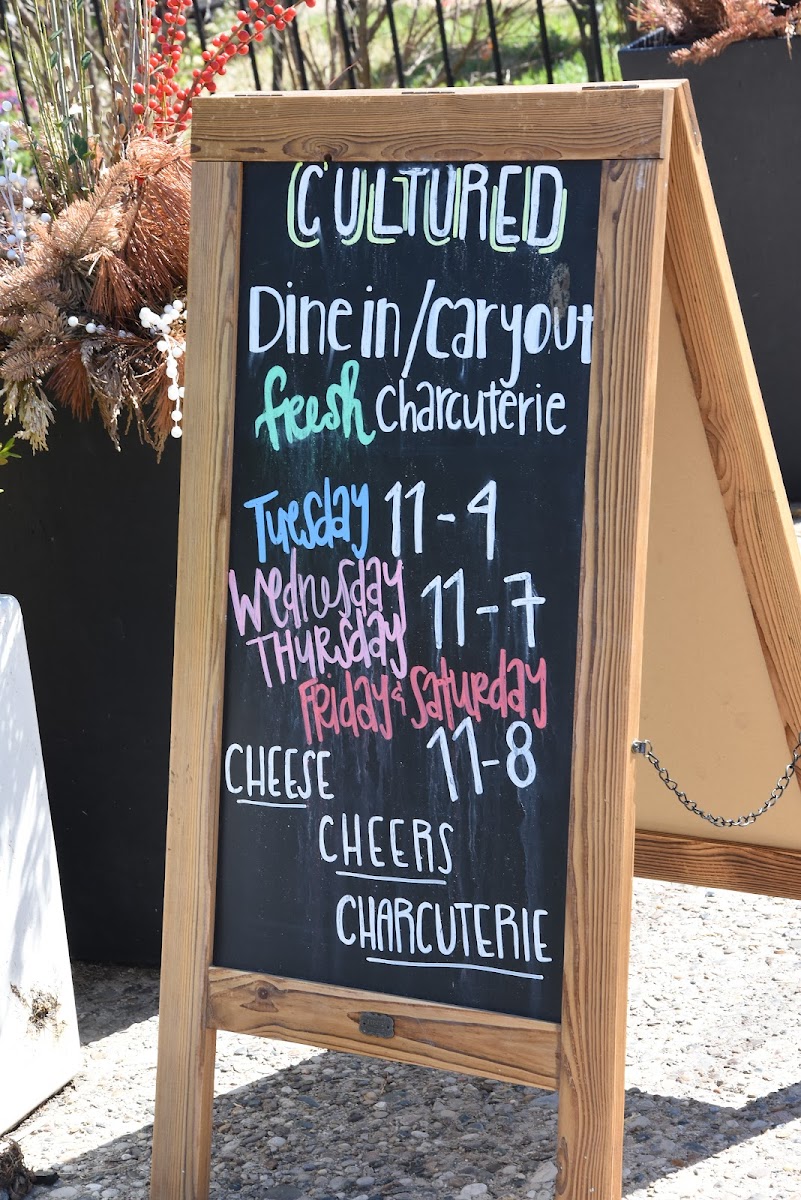 CULTURED
Dine in/caryout
fresh charcuterie
Tuesday 11-4
Wednesday
Thursday 11-7
Friday & Saturday
11-8
CHEESE
CHEERS
CHARCUTERIE